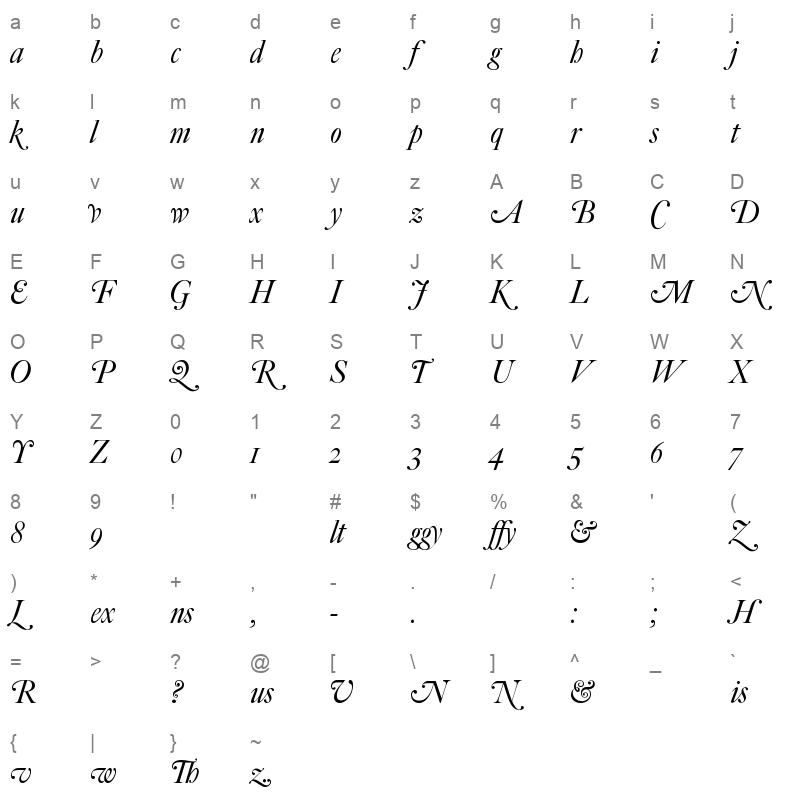 a b c d e f g h i j
a b c d e f g h i j
k l m n o p q r s t
k l m n o p q r s t
u v w x y z A B C D
u v w x y z A B C D
E F G H I J K L M N
E F G H I J K L M N
O P Q R S T U V W X
O P Q R S T U V W X
Y Z 0 1 2 3 4 5 6 7
Y Z 0 1 2 3 4 5 6 7
8 9 ! " # $ % & ' (
8 9 lt ggy ffy & Z
) * + , - . / : ; <
L ex ns , - . : ; H
= > ? @ [ \ ] ^ _ `
R ? us V N N & is
{ | } ~
v w Th z.